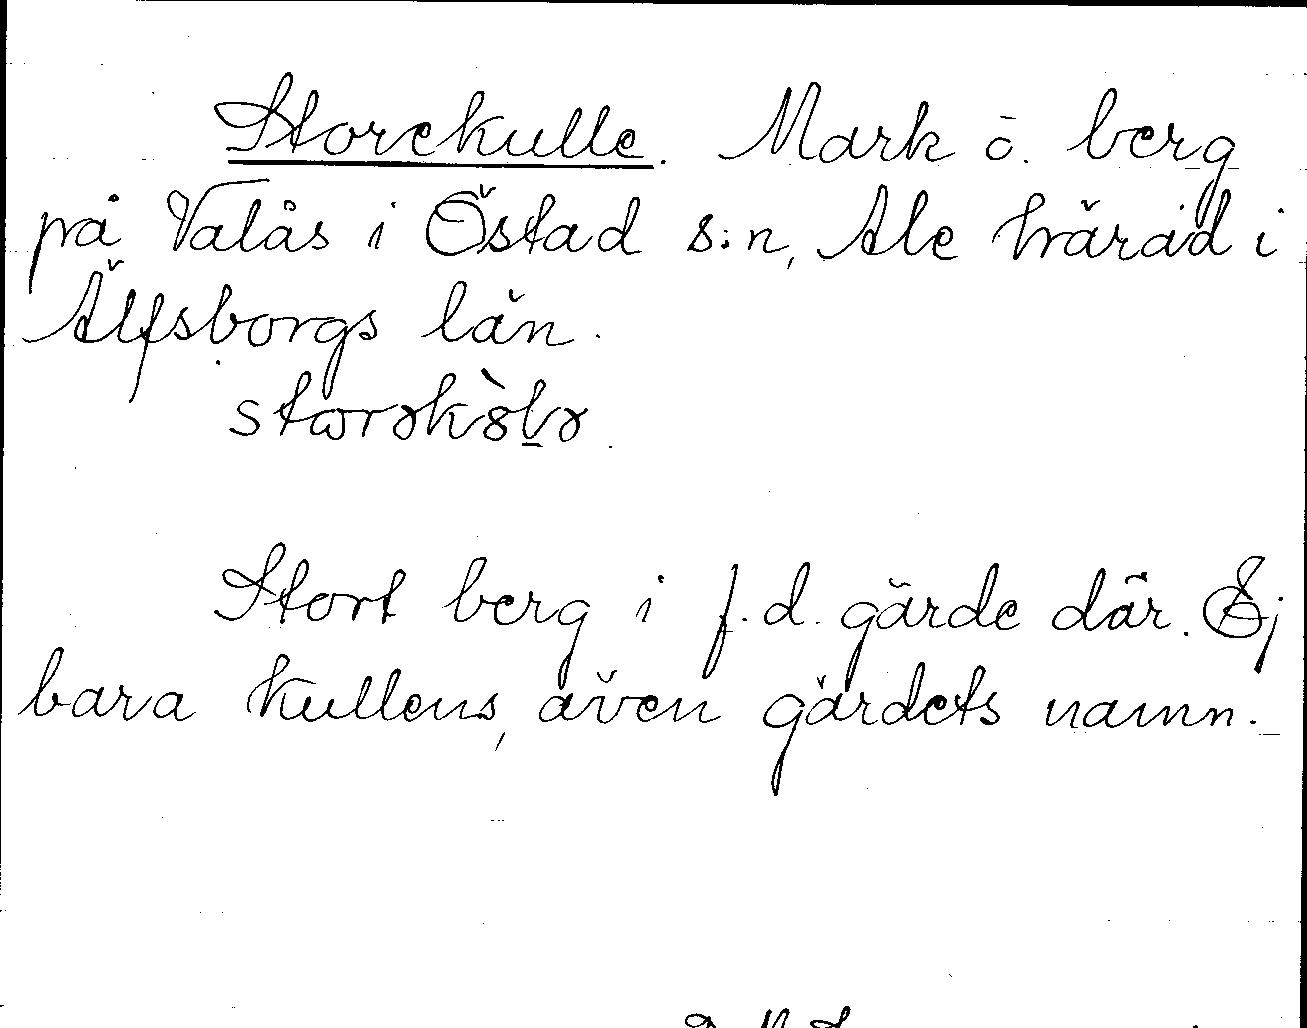 Storekulle. Mark o. berg
på Valås i Östad s:n, Ale härad i
Älfsborgs län.
Stort berg i f.d. gärde där. Ej
bara kullens, även gärdets namn.